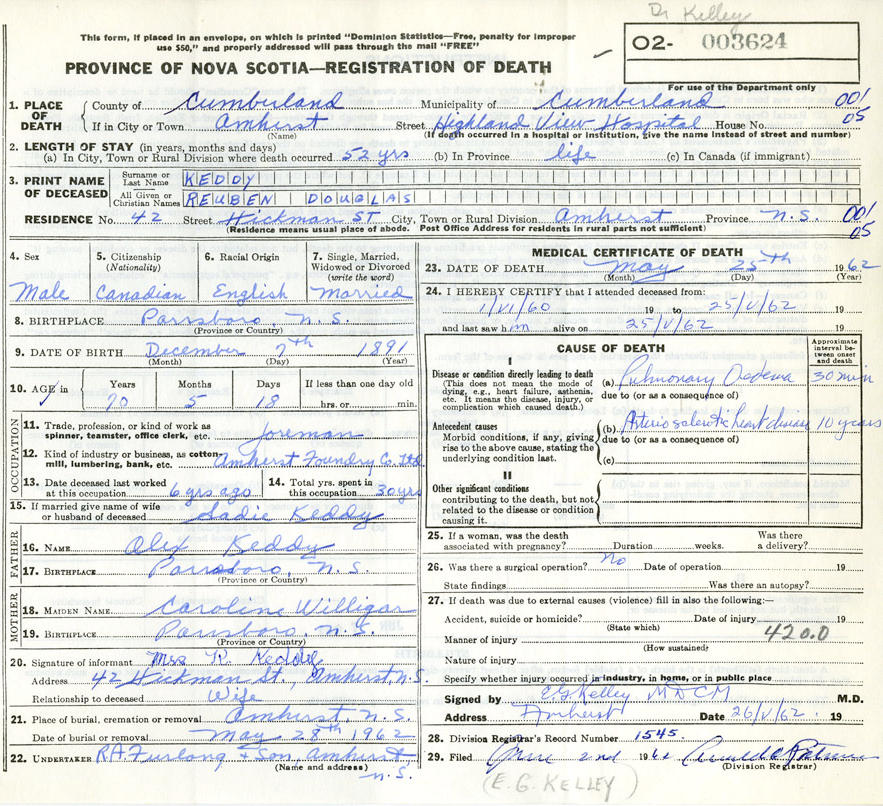 Dr Kelley
This form, if placed in an envelope, on which is printed "Dominion Statistics—Free, penalty for improper
use $50," and properly addressed will pass through the mail "FREE"
O2- 003624
PROVINCE OF NOVA SCOTIA—REGISTRATION OF DEATH
For use of the Department only
1. PLACE OF DEATH County of Cumberland Municipality of Cumberland 001
If in City or Town Amherst Street Highland View Hospital House No. 05
(Name) (If death occurred in a hospital or institution, give the name instead of street and number)
2. LENGTH OF STAY (in years, months and days)
(a) In City, Town or Rural Division where death occurred 52 yrs (b) In Province life (c) In Canada (if immigrant)
3. PRINT NAME OF DECEASED Surname or Last Name KEDDY
All Given or Christian Names REUBEN DOUGLAS
RESIDENCE No. 42 Street Hickman ST City, Town or Rural Division Amherst Province N.S. 001
(Residence means usual place of abode. Post Office Address for residents in rural parts not sufficient) 05
4. Sex Male
5. Citizenship (Nationality) Canadian
6. Racial Origin English
7. Single, Married, Widowed or Divorced (write the word) Married
8. BIRTHPLACE Parrsboro, N.S.
(Province or Country)
9. DATE OF BIRTH December 7th 1891
(Month) (Day) (Year)
10. AGE in Years Months Days If less than one day old
70 5 18 hrs. or min.
OCCUPATION
11. Trade, profession, or kind of work as
spinner, teamster, office clerk, etc. foreman
12. Kind of industry or business, as cotton-
mill, lumbering, bank, etc. Amherst Foundry Co. Ltd
13. Date deceased last worked at this occupation 6 yrs ago
14. Total yrs. spent in this occupation 30 yrs
15. If married give name of wife
or husband of deceased Sadie Keddy
FATHER
16. NAME Alex Keddy
17. BIRTHPLACE Parrsboro, N.S.
(Province or Country)
MOTHER
18. MAIDEN NAME Caroline Willigar
19. BIRTHPLACE Parrsboro, N.S.
(Province or Country)
20. Signature of informant Mrs R. Keddy
Address 42 Hickman St., Amherst, N.S.
Relationship to deceased Wife
21. Place of burial, cremation or removal Amherst, N.S.
Date of burial or removal May 28th 1962
22. UNDERTAKER R A Furlong & Son, Amherst
(Name and address) N.S.
MEDICAL CERTIFICATE OF DEATH
23. DATE OF DEATH May 25th 1962
(Month) (Day) (Year)
24. I HEREBY CERTIFY that I attended deceased from:
1/VI/60 19 to 25/V/62 19
and last saw him alive on 25/V/62 19
CAUSE OF DEATH
Approximate interval between onset and death
I
Disease or condition directly leading to death (a) Pulmonary Oedema 30 min
(This does not mean the mode of
dying, e.g., heart failure, asthenia,
etc. It means the disease, injury, or
complication which caused death.)
due to (or as a consequence of)
Antecedent causes (b) Arterio sclerotic heart disease 10 years
Morbid conditions, if any, giving
rise to the above cause, stating the
underlying condition last.
due to (or as a consequence of)
(c)
II
Other significant conditions
contributing to the death, but not
related to the disease or condition
causing it.
25. If a woman, was the death
associated with pregnancy? Duration weeks. Was there a delivery?
26. Was there a surgical operation? No Date of operation 19
State findings Was there an autopsy?
27. If death was due to external causes (violence) fill in also the following:—
Accident, suicide or homicide? Date of injury 19
(State which) 420.0
Manner of injury
(How sustained)
Nature of injury
Specify whether injury occurred in industry, in home, or in public place
Signed by E G Kelley MDCM M.D.
Address Amherst Date 26/V/62 19
28. Division Registrar's Record Number 1545
29. Filed June 2nd 1962
(Division Registrar)
(E. G. KELLEY)